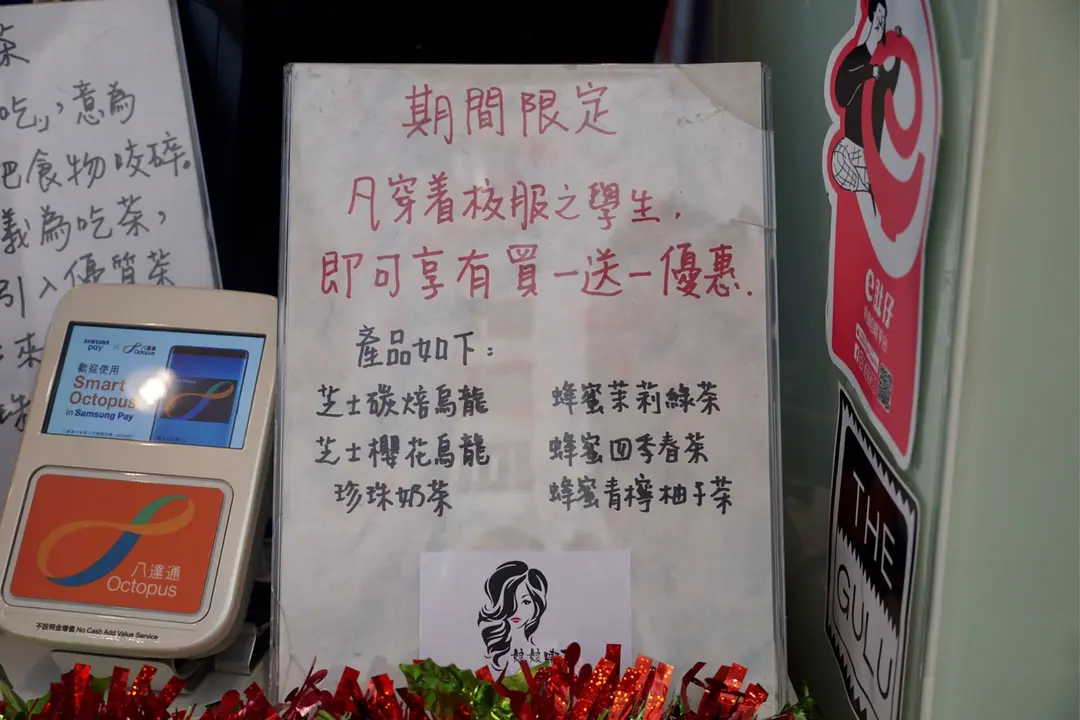 茶
吃」,意為
把食物咬碎。
義為吃茶,
引入優質茶
來
珠
SAMSUNG pay × 八達通 Octopus
歡迎使用
Smart
Octopus
in Samsung Pay
八達通
Octopus
不設現金增值 No Cash Add Value Service
期間限定
凡穿着校服之學生,
即可享有買一送一優惠.
產品如下:
芝士碳焙烏龍 蜂蜜茉莉綠茶
芝士櫻花烏龍 蜂蜜四季春茶
珍珠奶茶 蜂蜜青檸柚子茶
e肚仔
THE
GULU